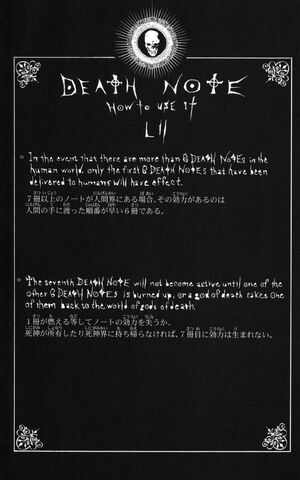 DEATH NOTE
How to use it
LII
○ In the event that there are more than 6 DEATH NOTEs in the
human world, only the first 6 DEATH NOTEs that have been
delivered to humans will have effect.
7冊以上のノートが人間界にある場合、その効力があるのは
人間の手に渡った順番が早い6冊である。
○ The seventh DEATH NOTE will not become active until one of the
other 6 DEATH NOTEs is burned up, or a god of death takes one
of them back to the world of gods of death.
1冊が燃える等してノートの効力を失うか、
死神が所有したり死神界に持ち帰らなければ、7冊目に効力は生まれない。